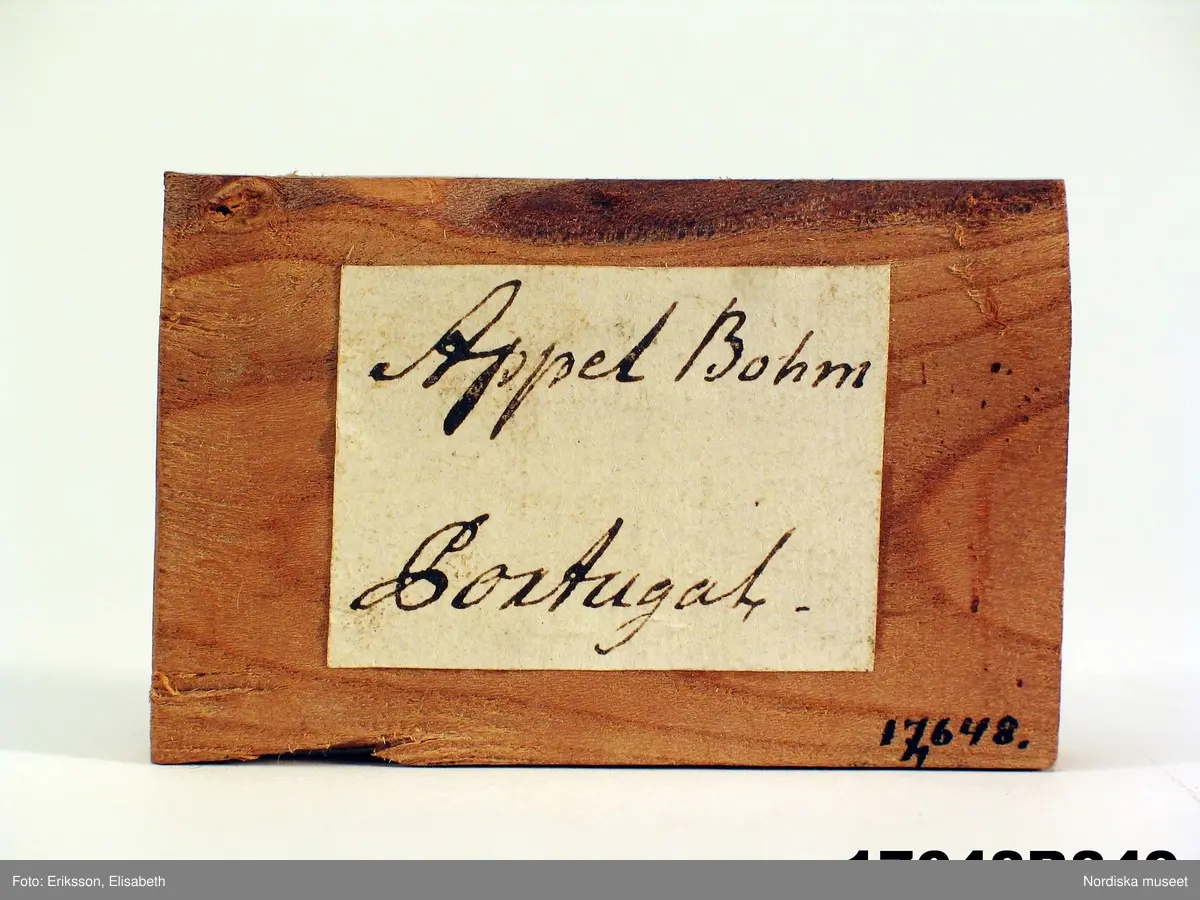 Appel Bohm
Portugal.
17,648.
Foto: Eriksson, Elisabeth
Nordiska museet